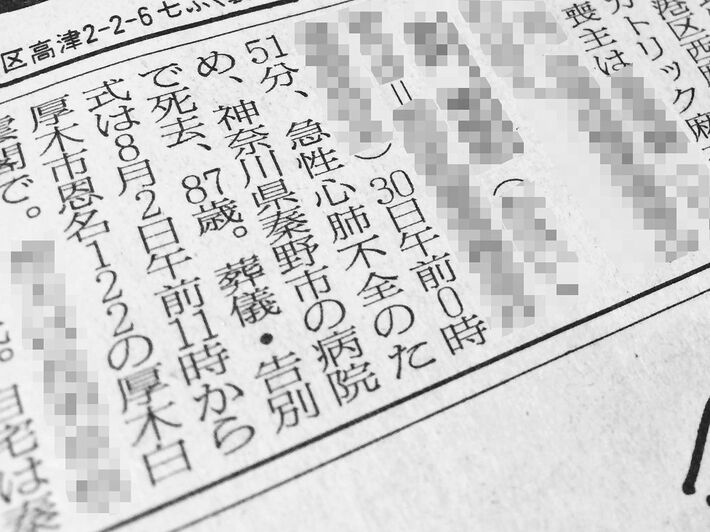 区高津2-2-6七
港区西麻
カトリック麻
喪主は
（
＝
）30日午前0時
51分、急性心肺不全のた
め、神奈川県秦野市の病院
で死去、87歳。葬儀・告別
式は8月2日午前11時から
厚木市恩名122の厚木白
雲閣で。
。自宅は秦